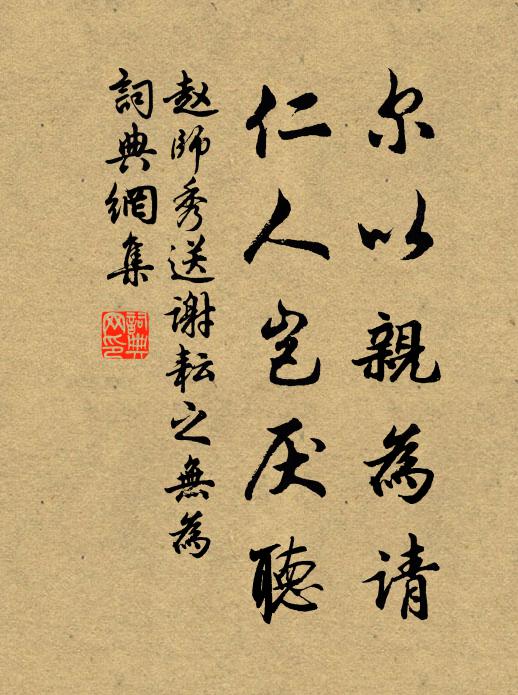 尔以親為請
仁人岂厌聽
赵師秀送谢耘之無為
詞典網集
詞典網印